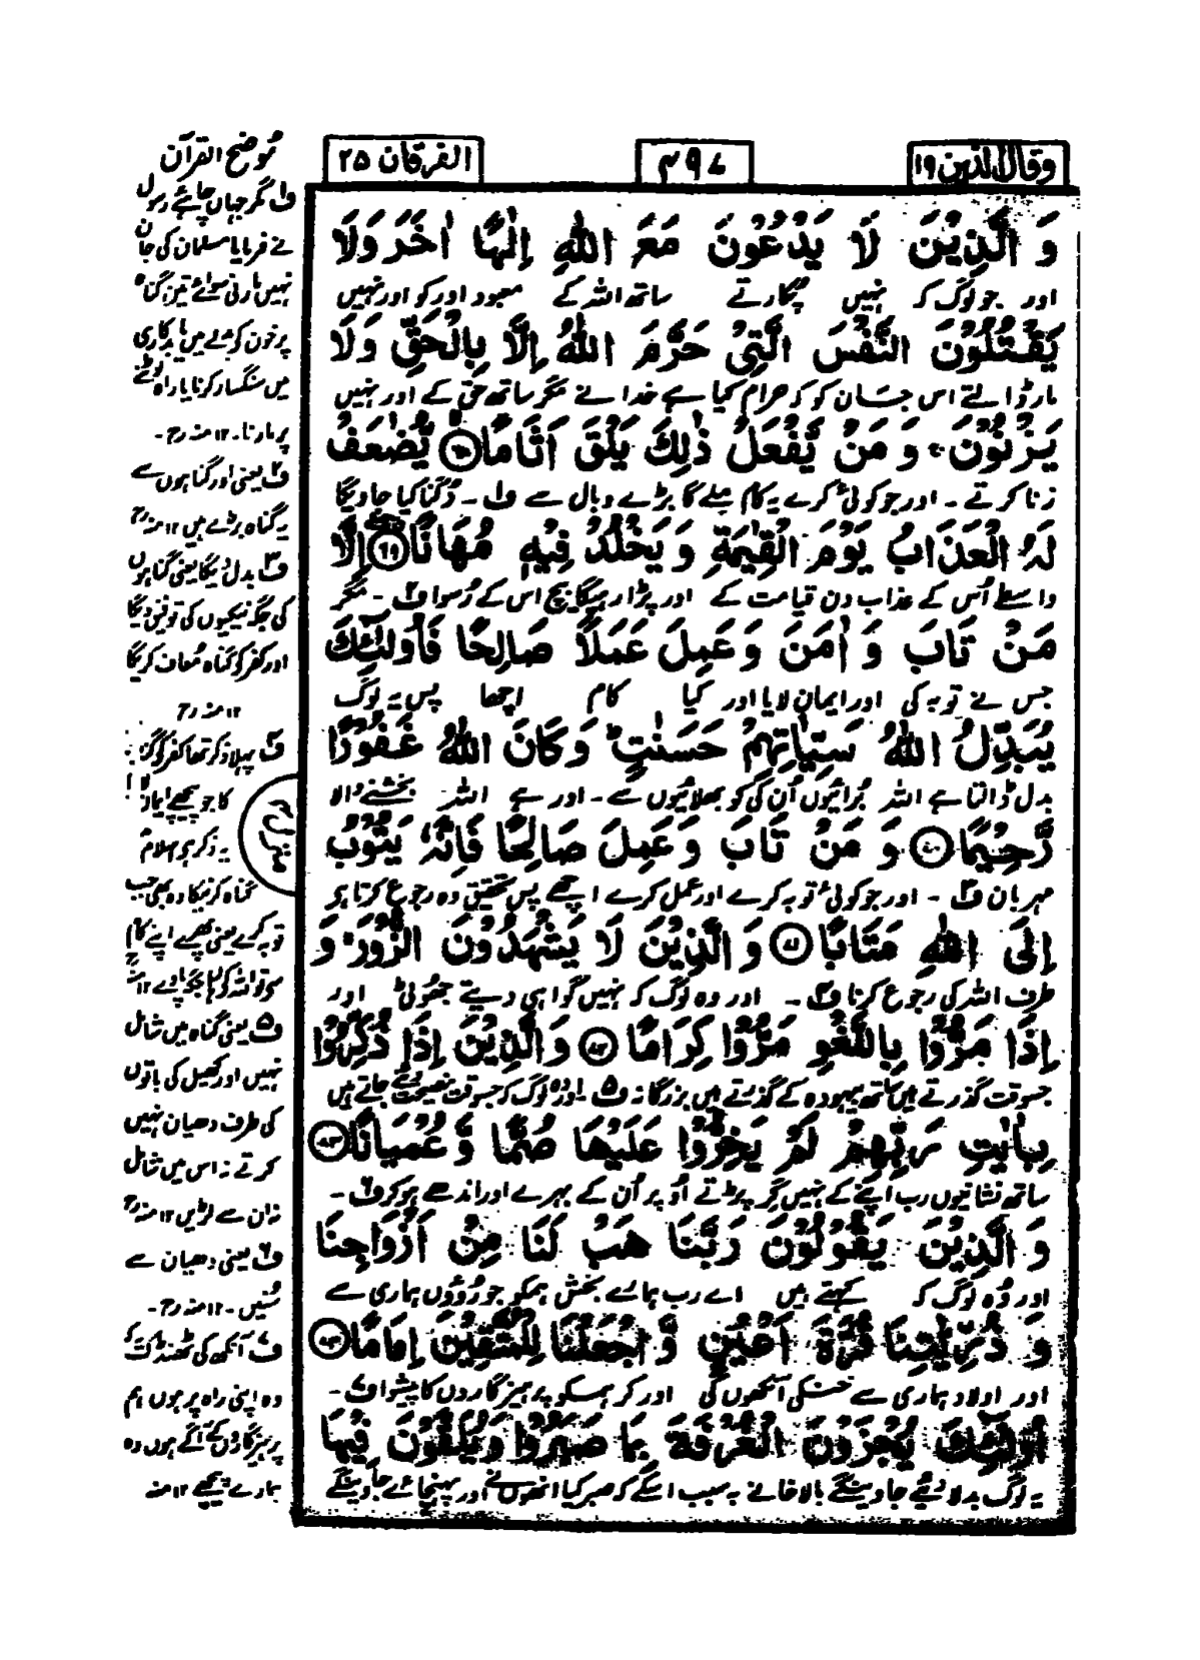 وقال الذين ١٩
٤٩٧
الفرقان ٢٥
وَالَّذِيْنَ لَا يَدْعُوْنَ مَعَ اللّٰهِ اِلٰهًا اٰخَرَ وَلَا
اور جو لوگ کہ نہیں پکارتے ساتھ اللہ کے معبود اور کو اور نہیں
يَقْتُلُوْنَ النَّفْسَ الَّتِيْ حَرَّمَ اللّٰهُ اِلَّا بِالْحَقِّ وَلَا
مار ڈالتے اس جان کو کہ حرام کیا ہے خدا نے مگر ساتھ حق کے اور نہیں
يَزْنُوْنَ وَمَنْ يَّفْعَلْ ذٰلِكَ يَلْقَ اَثَامًا ٦٨ يُّضٰعَفْ
زنا کرتے ۔ اور جو کوئی کرے یہ کام ملے گا بڑے وبال سے ف۱ ۔ دُگنا کیا جاویگا
لَهُ الْعَذَابُ يَوْمَ الْقِيٰمَةِ وَيَخْلُدْ فِيْهٖ مُهَانًا ٦٩ اِلَّا
واسطے اُس کے عذاب دن قیامت کے اور پڑا رہیگا بیچ اس کے رُسوا ف۲ ۔ مگر
مَنْ تَابَ وَاٰمَنَ وَعَمِلَ عَمَلًا صَالِحًا فَاُولٰٓئِكَ
جس نے توبہ کی اور ایمان لایا اور کیا کام اچھا پس یہ لوگ
يُبَدِّلُ اللّٰهُ سَيِّاٰتِهِمْ حَسَنٰتٍ ؕ وَكَانَ اللّٰهُ غَفُوْرًا
بدل ڈالتا ہے اللہ بُرائیوں اُن کی کو بھلائیوں سے ۔ اور ہے اللہ بخشنے والا
رَّحِيْمًا ٧٠ وَمَنْ تَابَ وَعَمِلَ صَالِحًا فَاِنَّهٗ يَتُوْبُ
مہربان ف۳ ۔ اور جو کوئی توبہ کرے اور عمل کرے اچھے پس تحقیق وہ رجوع کرتا ہے
اِلَى اللّٰهِ مَتَابًا ٧١ وَالَّذِيْنَ لَا يَشْهَدُوْنَ الزُّوْرَ وَ
طرف اللہ کی رجوع کرنا ف۴ ۔ اور وہ لوگ کہ نہیں گواہی دیتے جھوٹی اور
اِذَا مَرُّوْا بِاللَّغْوِ مَرُّوْا كِرَامًا ٧٢ وَالَّذِيْنَ اِذَا ذُكِّرُوْا
جسوقت گذرتے ہیں ساتھ بیہودہ کے گذرتے ہیں بزرگانہ ف۵ اور وہ لوگ کہ جسوقت نصیحت دیئے جاتے ہیں
بِاٰيٰتِ رَبِّهِمْ لَمْ يَخِرُّوْا عَلَيْهَا صُمًّا وَّعُمْيَانًا ٧٣
ساتھ نشانیوں رب اپنے کے نہیں گر پڑتے اوپر اُن کے بہرے اور اندھے ہو کر ف۶ ۔
وَالَّذِيْنَ يَقُوْلُوْنَ رَبَّنَا هَبْ لَنَا مِنْ اَزْوَاجِنَا
اور وُہ لوگ کہ کہتے ہیں اے رب ہمارے بخش ہمکو جوروُوں ہماری سے
وَذُرِّيّٰتِنَا قُرَّةَ اَعْيُنٍ وَّاجْعَلْنَا لِلْمُتَّقِيْنَ اِمَامًا ٧٤
اور اولاد ہماری سے خنکی آنکھوں کی اور کر ہمکو پرہیزگاروں کا پیشوا ف۷ ۔
اُولٰٓئِكَ يُجْزَوْنَ الْغُرْفَةَ بِمَا صَبَرُوْا وَيُلَقَّوْنَ فِيْهَا
یہ لوگ بدلا دیئے جاوینگے بالاخانے بہ سبب اسکے کہ صبر کیا انھوں نے اور پہنچائے جاوینگے
مُوضح القرآن
ف۱ مگر جہاں چاہئے رسول
نے فرمایا مسلمان کی جان
نہیں مارنی سوائے تین گناہ
پر خون کے بدلے میں یا بدکاری
میں سنگسار کرنا یا راہ لوٹنے
پر مارنا۔ ۱۲ منہ رح ۔
ف۲ یعنی اور گناہوں سے
یہ گناہ بڑے ہیں ۱۲ منہ رح
ف۳ بدل دیگا یعنی گناہوں
کی جگہ نیکیوں کی توفیق دیگا
اور کفر کو گناہ مُعاف کریگا
۱۲ منہ رح
ف۴ پہلا ذکر تھا کفر کے گناہ
کا جو پیچھے ایمان لایا
یہ ذکر ہے اسلام
گناہ کرنیکا وہ بھی جب
توبہ کرے یعنی پھرے اپنے کام
ف۵ یعنی گناہ میں شامل
نہیں اور کھیل کی باتوں
کی طرف دھیان نہیں
کرتے نہ اس میں شامل
نہ ان سے لڑیں ۱۲ منہ رح
ف۶ یعنی دھیان سے
سُنیں ۔ ۱۲ منہ رح ۔
ف۷ آنکھ کی ٹھنڈک یہ کہ
وہ اپنی راہ پر ہوں ہم
پرہیزگاروں کے آگے ہوں وہ
ہمارے پیچھے ۱۲ منہ